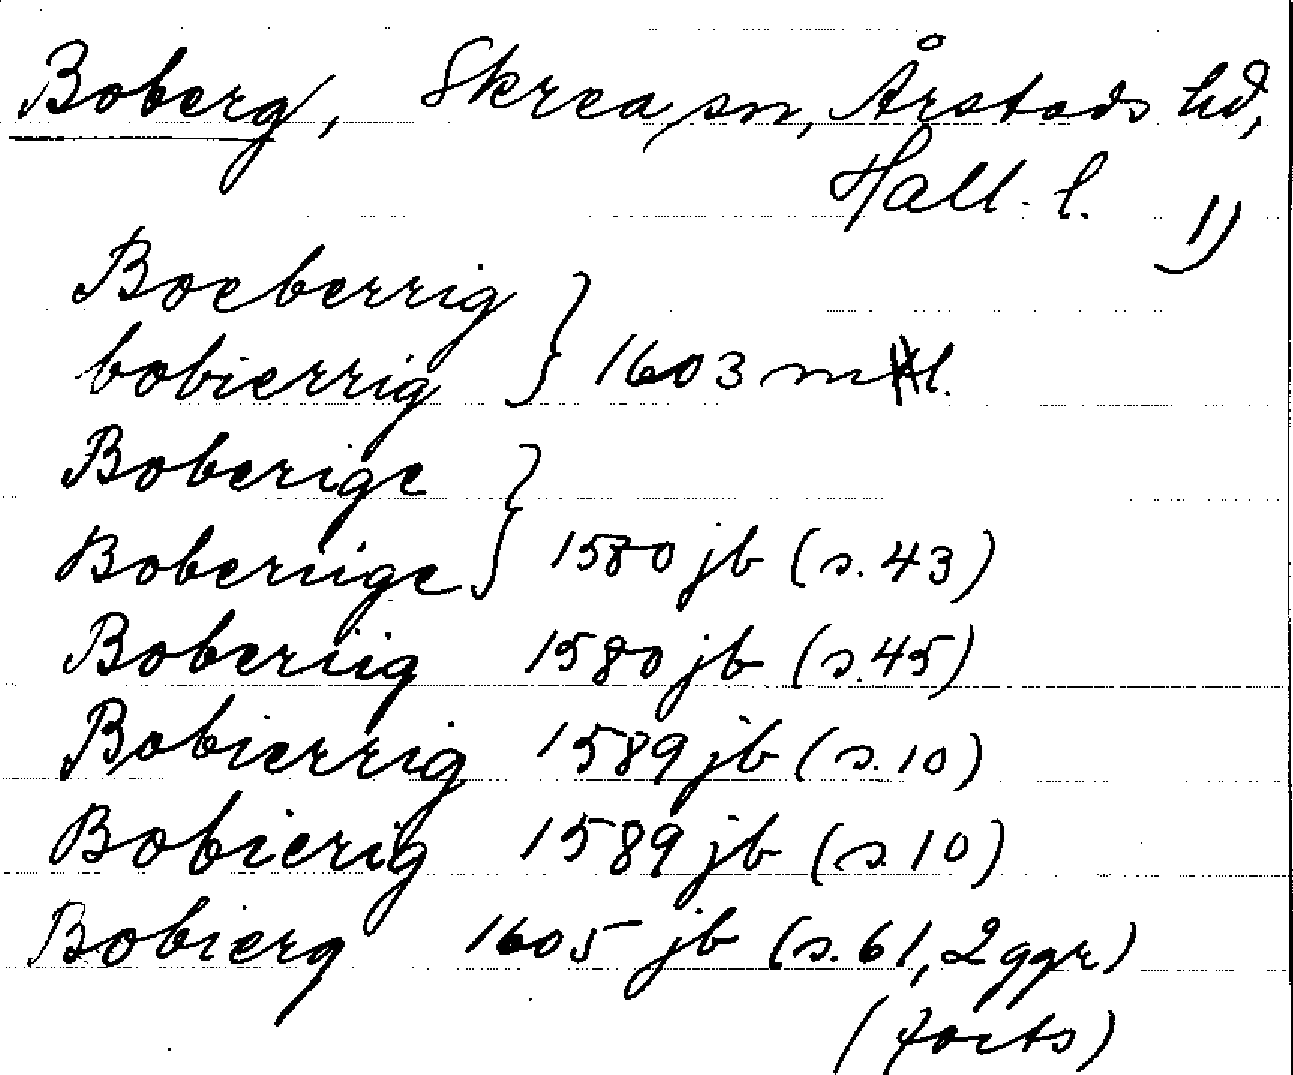 Boberg, Skrea sn, Årstads hd,
Hall. l. 1)
Boeberrig
bobierrig } 1603 ml.
Boberige
Boberiige } 1580 jb (s. 43)
Boberiig 1580 jb (s. 45)
Bobierrig 1589 jb (s. 10)
Bobierig 1589 jb (s. 10)
Bobierg 1605 jb (s. 61, 2 ggr)
(forts)